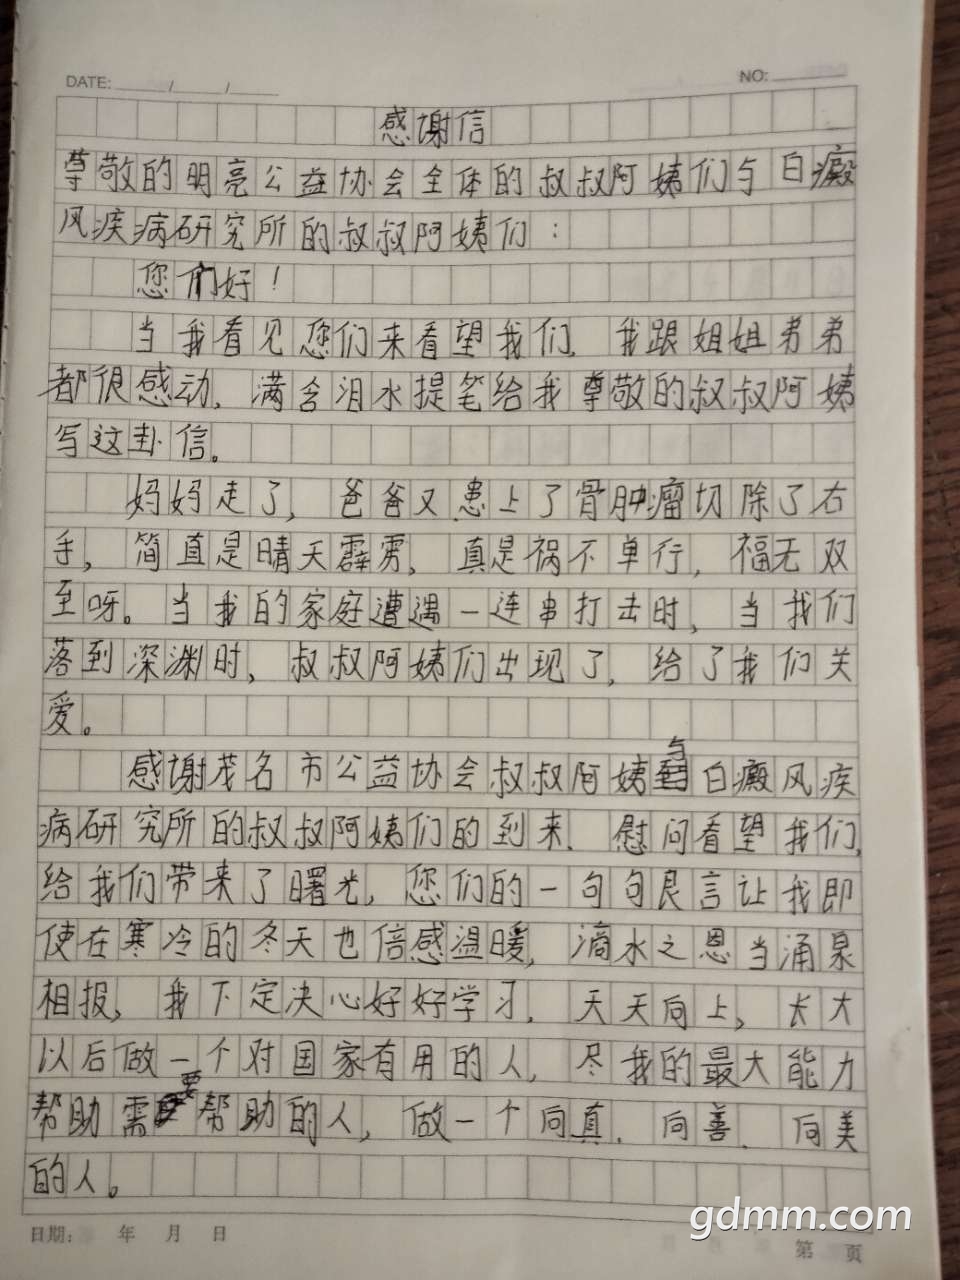 DATE: / /
NO:
感谢信
尊敬的明亮公益协会全体的叔叔阿姨们与白癜
风疾病研究所的叔叔阿姨们：
您们好！
当我看见您们来看望我们，我跟姐姐弟弟
都很感动，满含泪水提笔给我尊敬的叔叔阿姨
写这卦信。
妈妈走了，爸爸又患上了骨肿瘤切除了右
手，简直是晴天霹雳，真是祸不单行，福无双
至呀。当我的家庭遭遇一连串打击时，当我们
落到深渊时，叔叔阿姨们出现了，给了我们关
爱。
感谢茂名市公益协会叔叔阿姨与白癜风疾
病研究所的叔叔阿姨们的到来，慰问看望我们，
给我们带来了曙光，您们的一句句良言让我即
使在寒冷的冬天也倍感温暖，滴水之恩当涌泉
相报，我下定决心好好学习，天天向上，长大
以后做一个对国家有用的人，尽我的最大能力
帮助需要帮助的人，做一个向真、向善、向美
的人。
日期： 年 月 日
第 页
gdmm.com